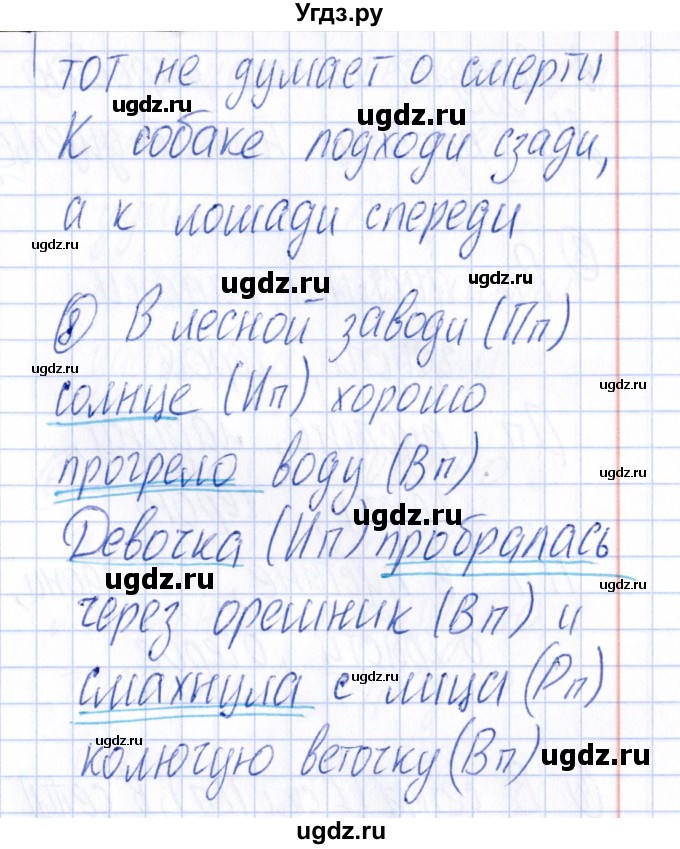 Угдз.ру
тот не думает о смерти
ugdz.ru ugdz.ru
К собаке подходи сзади,
ugdz.ru
а к лошади спереди
ugdz.ru ugdz.ru
В лесной заводи (Пп)
ugdz.ru
солнце (Ип) хорошо
ugdz.ru
прогрело воду (Вп).
ugdz.ru
ugdz.ru
Девочка (Ип) пробралась
ugdz.ru ugdz.ru
через орешник (Вп) и
ugdz.ru
смахнула с лица (Рп)
ugdz.ru
колючую веточку (Вп)
ugdz.ru
ugdz.ru
ugdz.ru